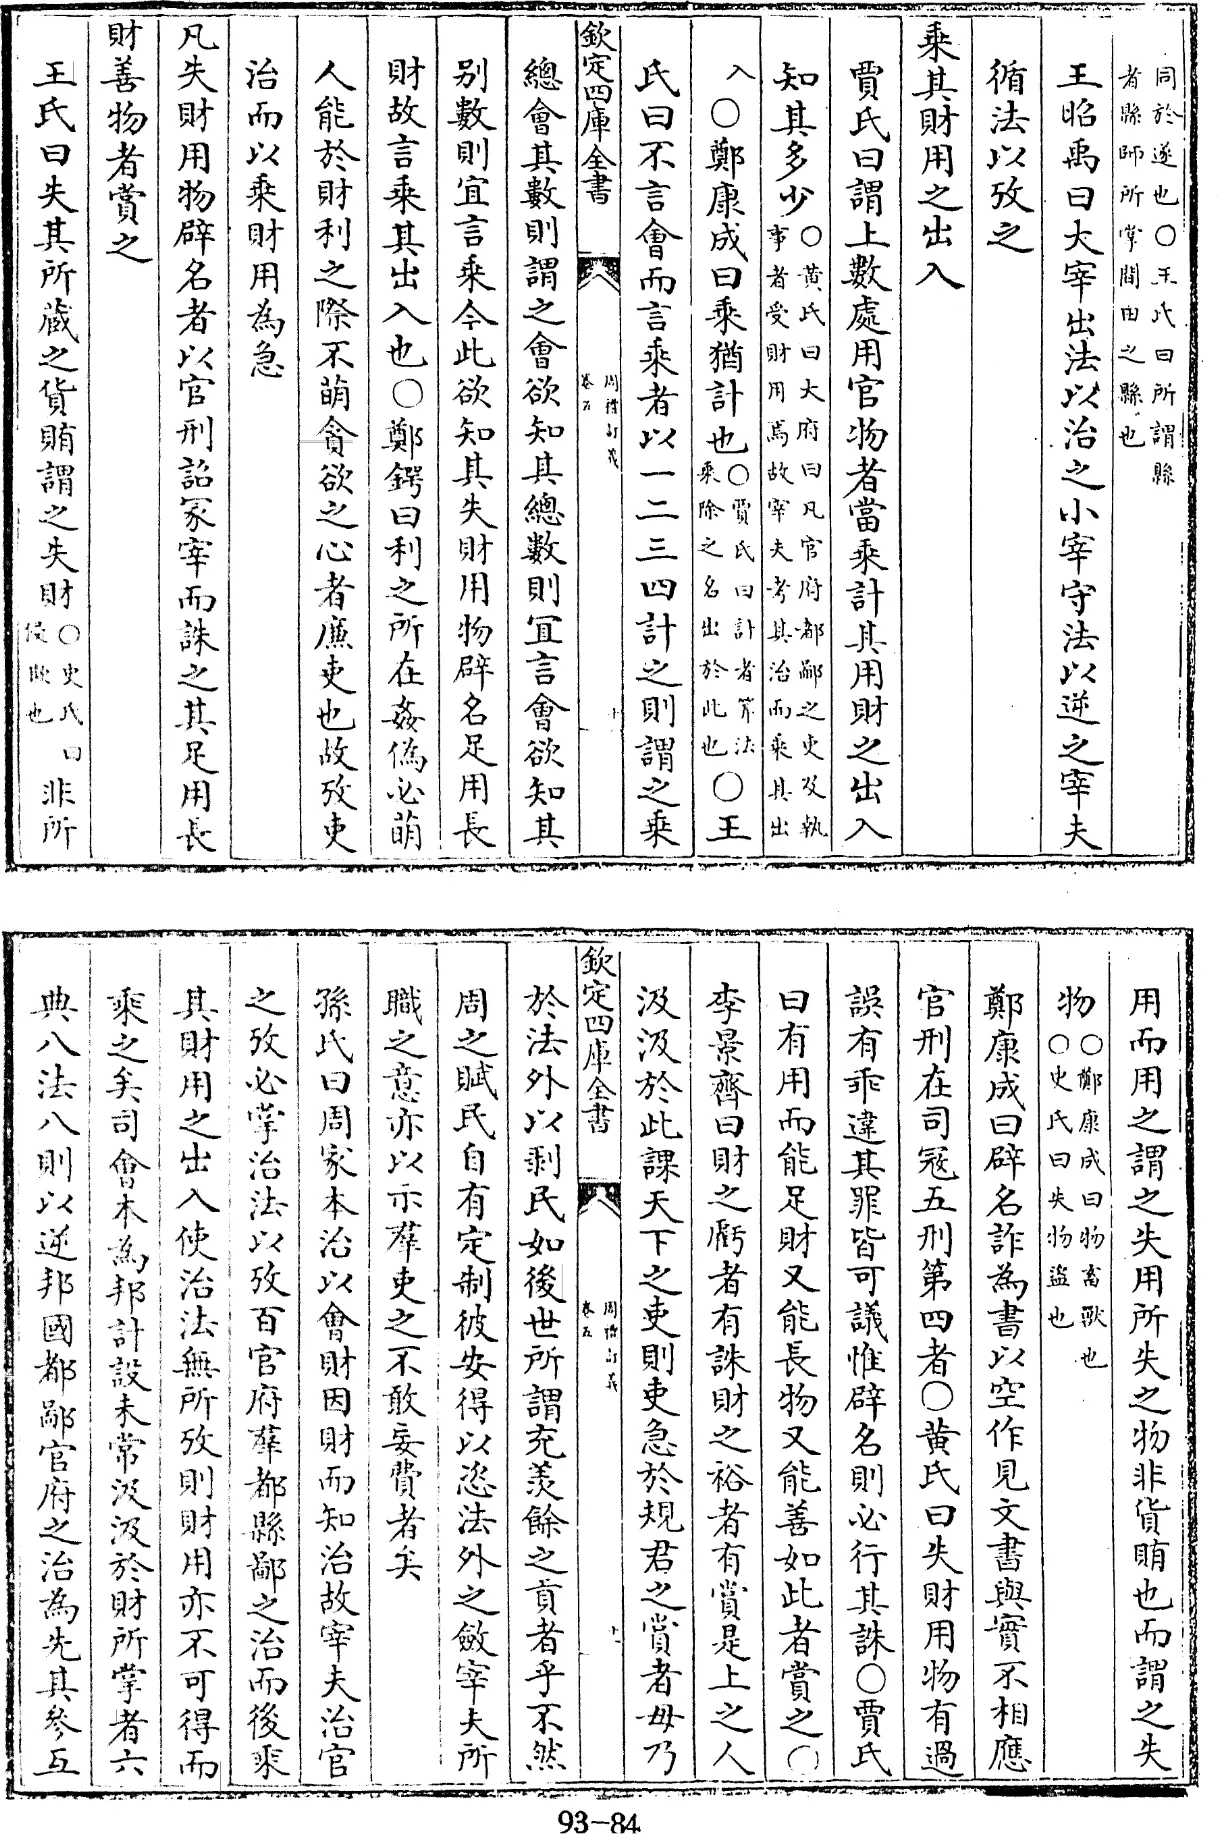 同於遂也○王氏曰所謂縣
者縣師所掌閭田之縣也
王昭禹曰大宰出法以治之小宰守法以逆之宰夫
循法以攷之
乘其財用之出入
賈氏曰謂上數處用官物者當乘計其用財之出入
知其多少○黃氏曰大府曰凡官府都鄙之吏及執
事者受財用焉故宰夫考其治而乘其出
入○鄭康成曰乘猶計也○賈氏曰計者筭法
乘除之名出於此也○王
氏曰不言會而言乘者以一二三四計之則謂之乘
欽定四庫全書
周禮訂義
卷五
十
總會其數則謂之會欲知其總數則宜言會欲知其
別數則宜言乘今此欲知其失財用物辟名足用長
財故言乘其出入也○鄭鍔曰利之所在姦偽必萌
人能於財利之際不萌貪欲之心者廉吏也故攷吏
治而以乘財用為急
凡失財用物辟名者以官刑詔冢宰而誅之其足用長
財善物者賞之
王氏曰失其所藏之貨賄謂之失財○史氏曰
侵欺也非所
用而用之謂之失用所失之物非貨賄也而謂之失
物○鄭康成曰物畜獸也
○史氏曰失物盜也
鄭康成曰辟名詐為書以空作見文書與實不相應
官刑在司冦五刑第四者○黃氏曰失財用物有過
誤有乖違其罪皆可議惟辟名則必行其誅○賈氏
曰有用而能足財又能長物又能善如此者賞之○
李景齊曰財之虧者有誅財之裕者有賞是上之人
汲汲於此課天下之吏則吏急於規君之賞者毋乃
欽定四庫全書
周禮訂義
卷五
十一
於法外以剥民如後世所謂充羨餘之貢者乎不然
周之賦民自有定制彼安得以恣法外之斂宰夫所
職之意亦以示羣吏之不敢妄費者矣
孫氏曰周家本治以會財因財而知治故宰夫治官
之攷必掌治法以攷百官府羣都縣鄙之治而後乘
其財用之出入使治法無所攷則財用亦不可得而
乘之矣司會本為邦計設未常汲汲於財所掌者六
典八法八則以逆邦國都鄙官府之治為先其參互
93-84